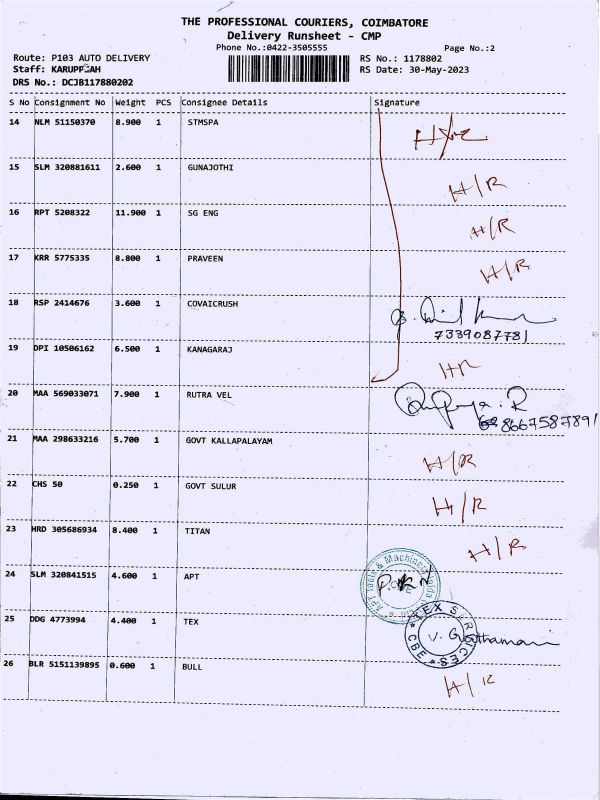 THE PROFESSIONAL COURIERS, COIMBATORE
Delivery Runsheet - CMP
Phone No.:0422-3505555 Page No.:2
Route: P103 AUTO DELIVERY RS No.: 1178802
Staff: KARUPPGAH RS Date: 30-May-2023
DRS No.: DCJB117880202
S No Consignment No Weight PCS Consignee Details Signature
14 NLM 51150370 8.900 1 STMSPA
15 SLM 320881611 2.600 1 GUNAJOTHI H/R
16 RPT 5208322 11.900 1 SG ENG H/R
17 KRR 5775335 8.800 1 PRAVEEN H/R
18 RSP 2414676 3.600 1 COVAICRUSH
7339087781
19 DPI 10506162 6.500 1 KANAGARAJ HR
20 MAA 569033071 7.900 1 RUTRA VEL
8667587891
21 MAA 298633216 5.700 1 GOVT KALLAPALAYAM H/R
22 CHS 50 0.250 1 GOVT SULUR H/R
23 HRD 305686934 8.400 1 TITAN H/R
24 SLM 320841515 4.600 1 APT
25 DDG 4773994 4.400 1 TEX TEX SERVICES CBE
26 BLR 5151139895 0.600 1 BULL H/R